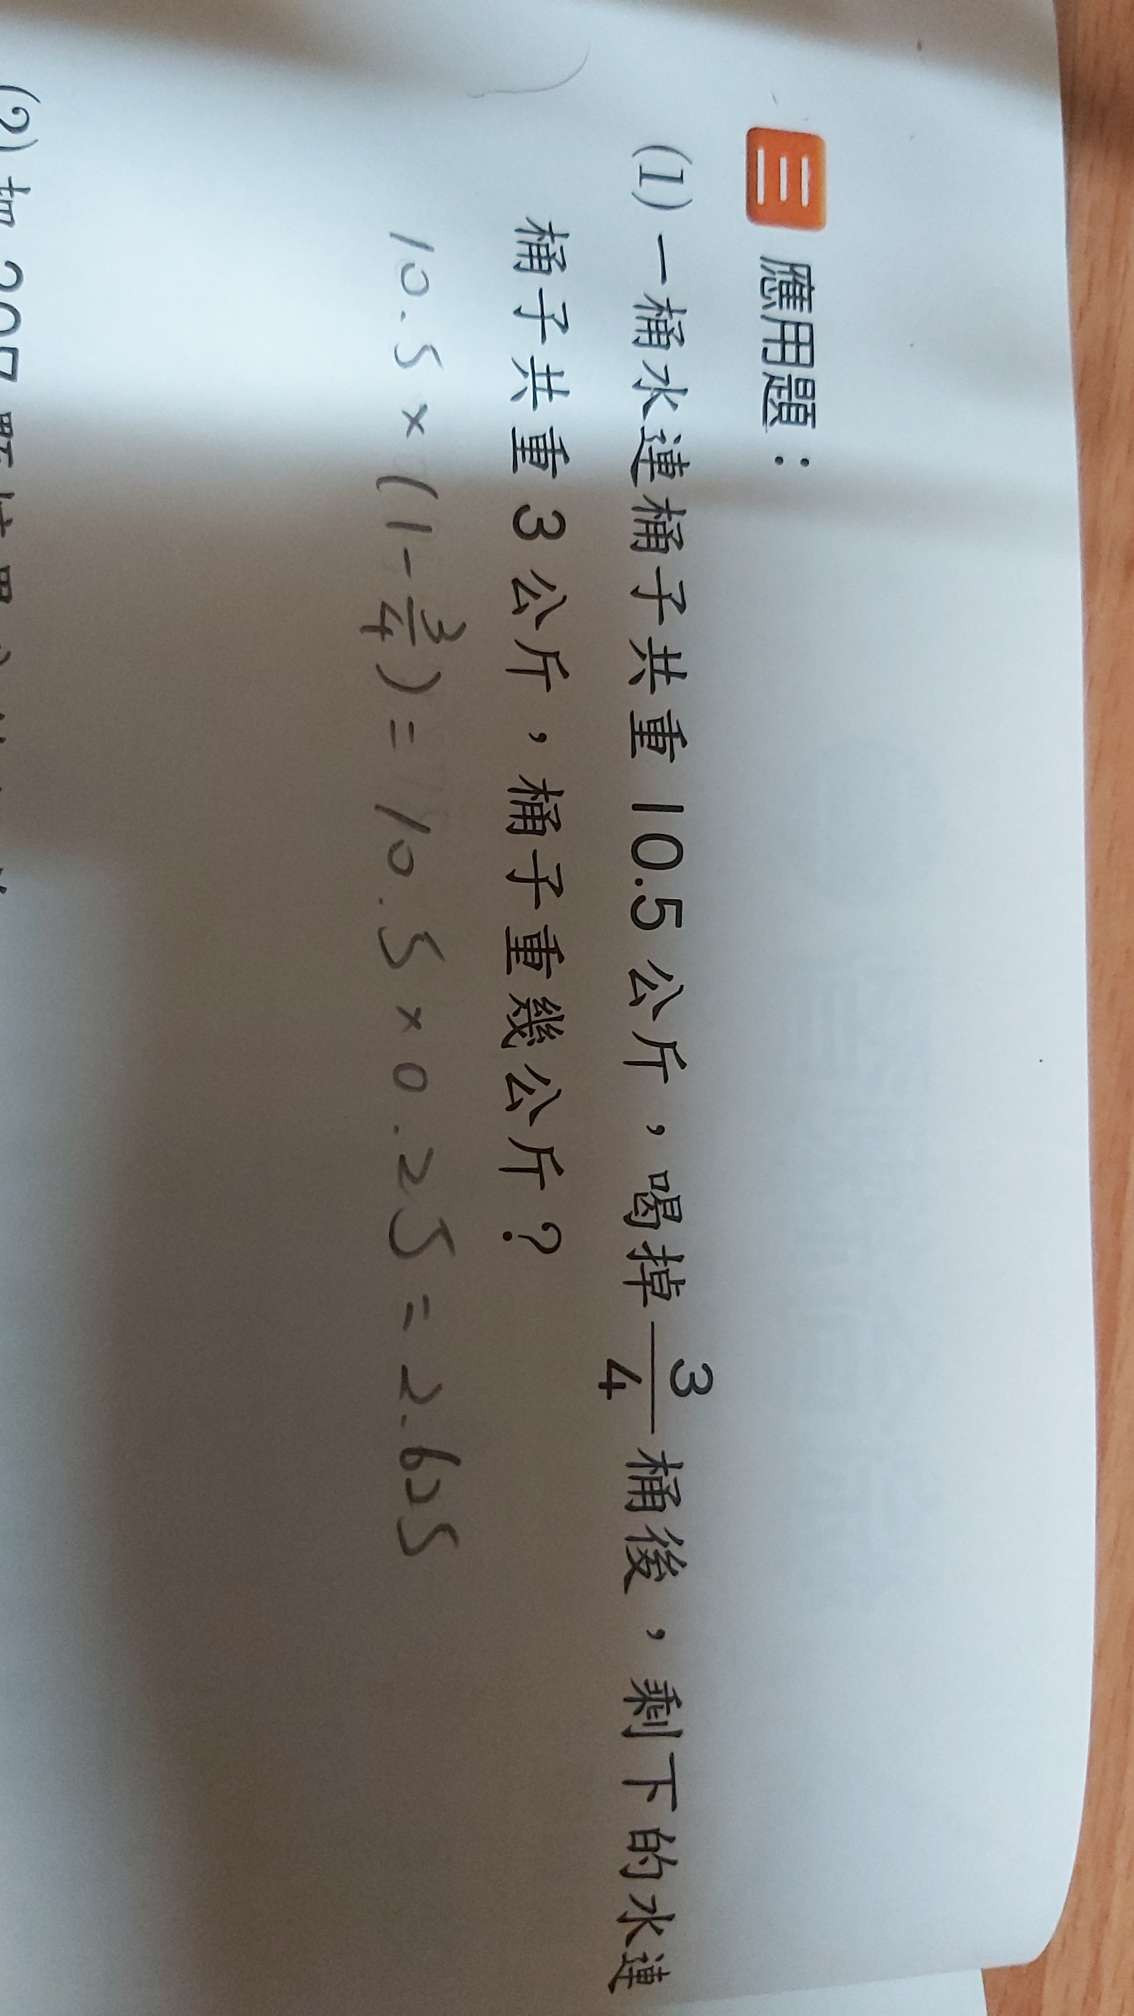 三 應用題：
(1) 一桶水連桶子共重 10.5 公斤，喝掉 3/4 桶後，剩下的水連
桶子共重 3 公斤，桶子重幾公斤？
10.5 × (1 - 3/4) = 10.5 × 0.25 = 2.625
(2) 把 207